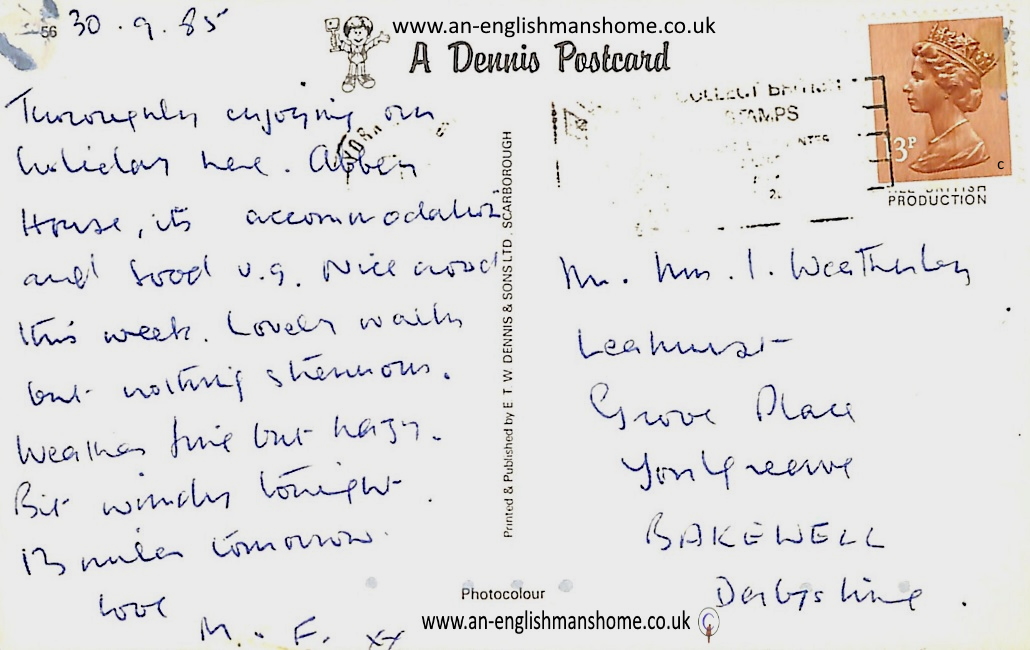 56
30.9.85
www.an-englishmanshome.co.uk
A Dennis Postcard
Thoroughly enjoying our
holiday here. Abbey
House, its accommodation
and food v.g. Nice crowd
this week. Lovely walks
but nothing strenuous.
Weather fine but hazy.
Bit windy tonight.
13 miles tomorrow.
Love
M. F. xx
Printed & Published by E T W DENNIS & SONS LTD. SCARBOROUGH
COLLECT BRITISH
STAMPS
13P
C
ALL BRITISH
PRODUCTION
Mr. Mrs. I. Weatherley
Leahurst
Grove Place
Youlgreave
BAKEWELL
Derbyshire.
Photocolour
www.an-englishmanshome.co.uk